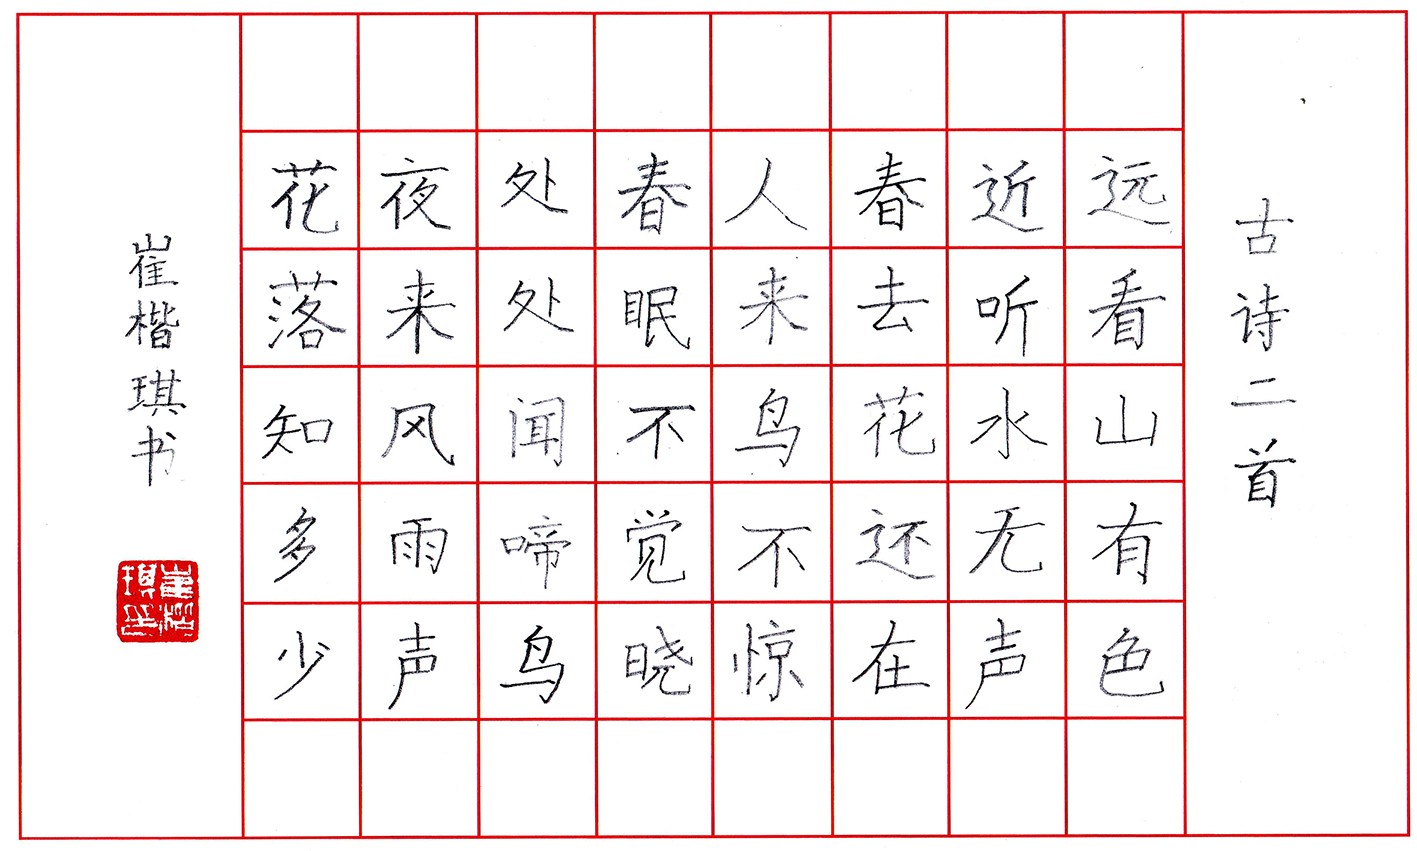 古诗二首
远看山有色
近听水无声
春去花还在
人来鸟不惊
春眠不觉晓
处处闻啼鸟
夜来风雨声
花落知多少
崔楷琪书